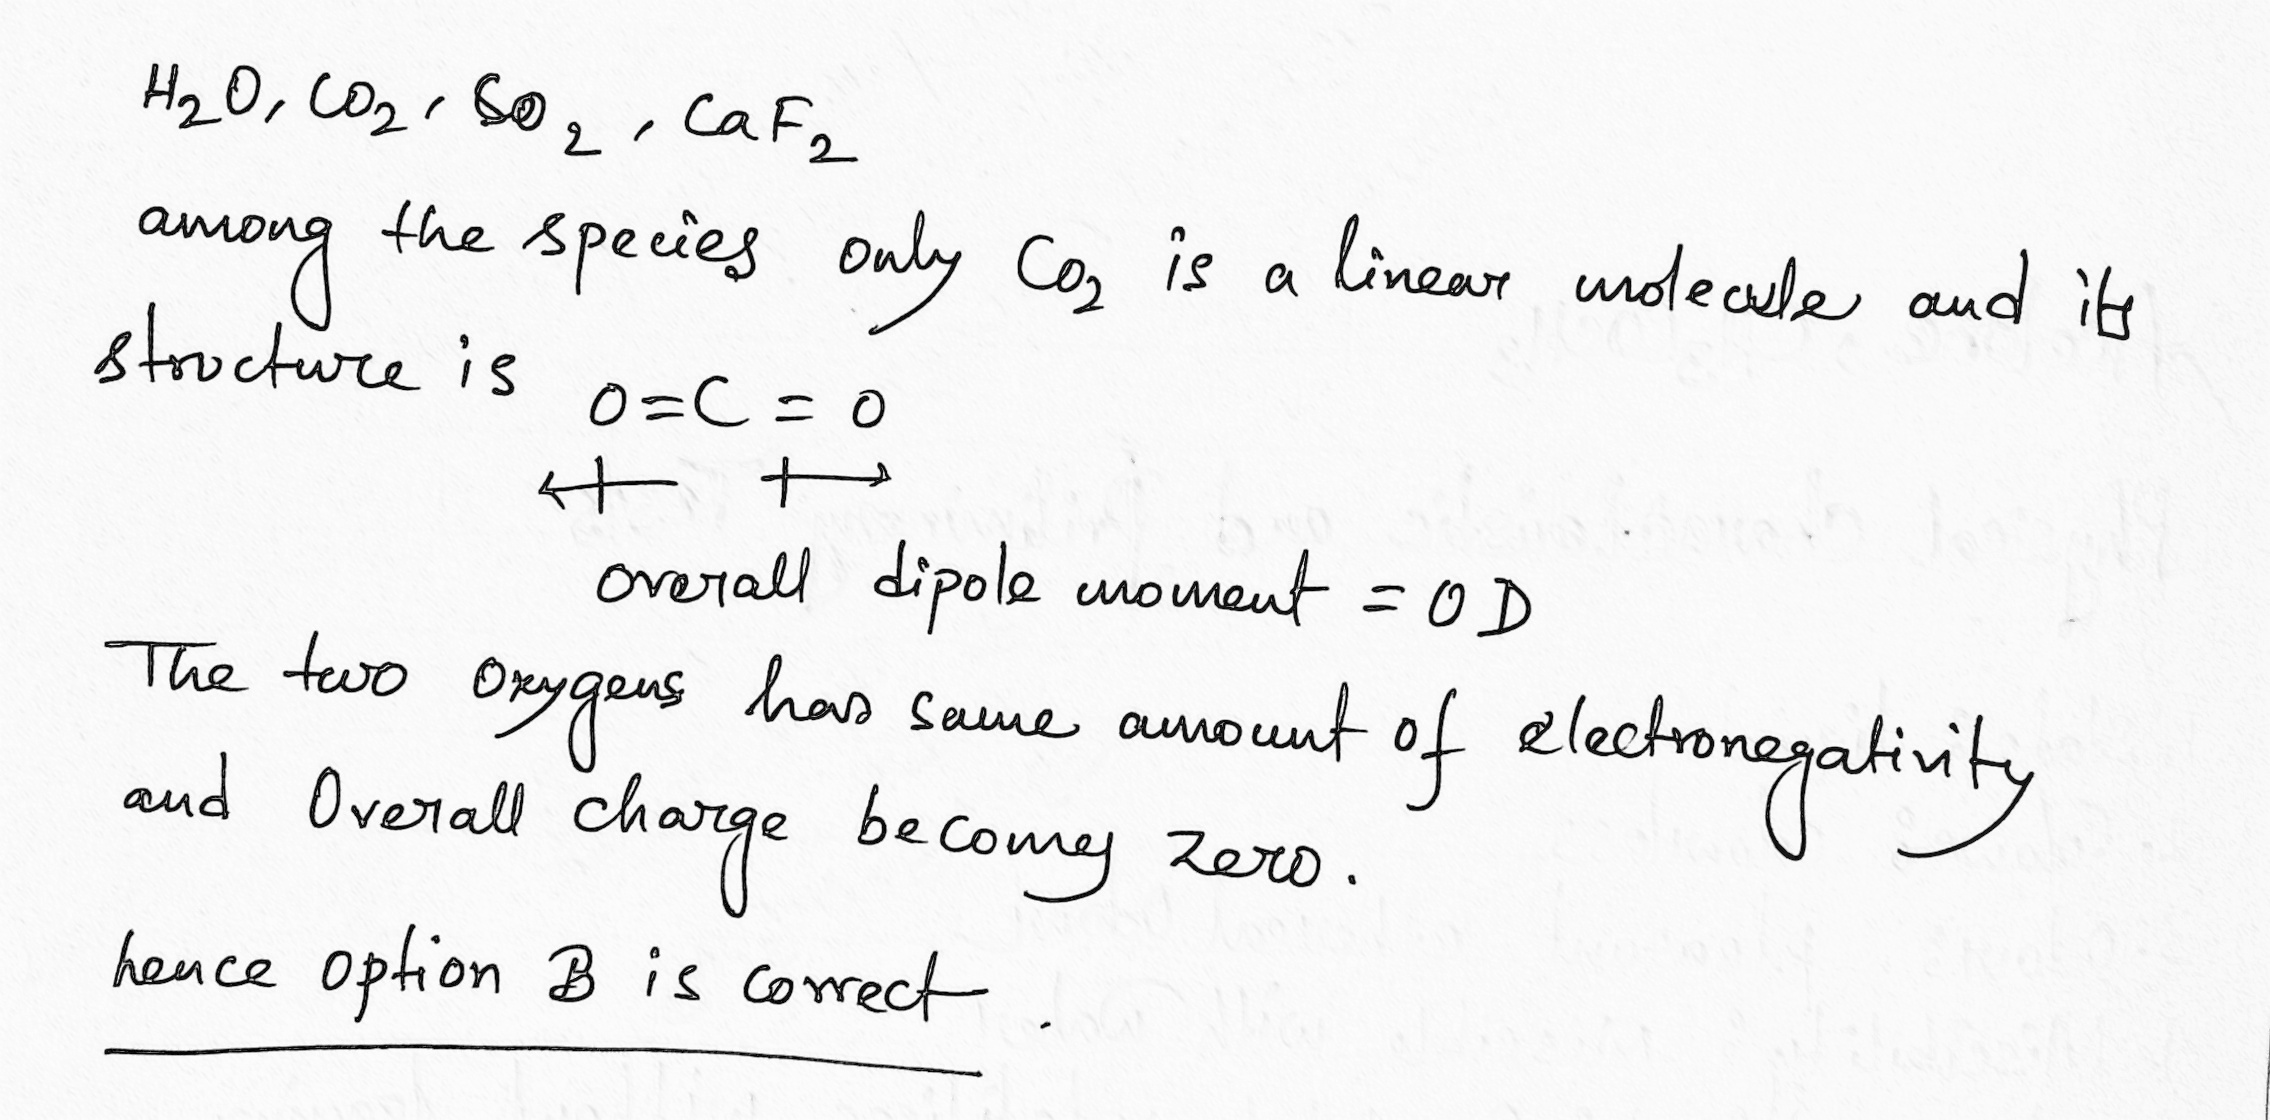 H₂O, CO₂, SO₂, CaF₂
among the species only CO₂ is a linear molecule and its
structure is
O=C=O
overall dipole moment = 0 D
The two oxygens has same amount of electronegativity
and Overall charge becomes zero.
hence option B is correct.